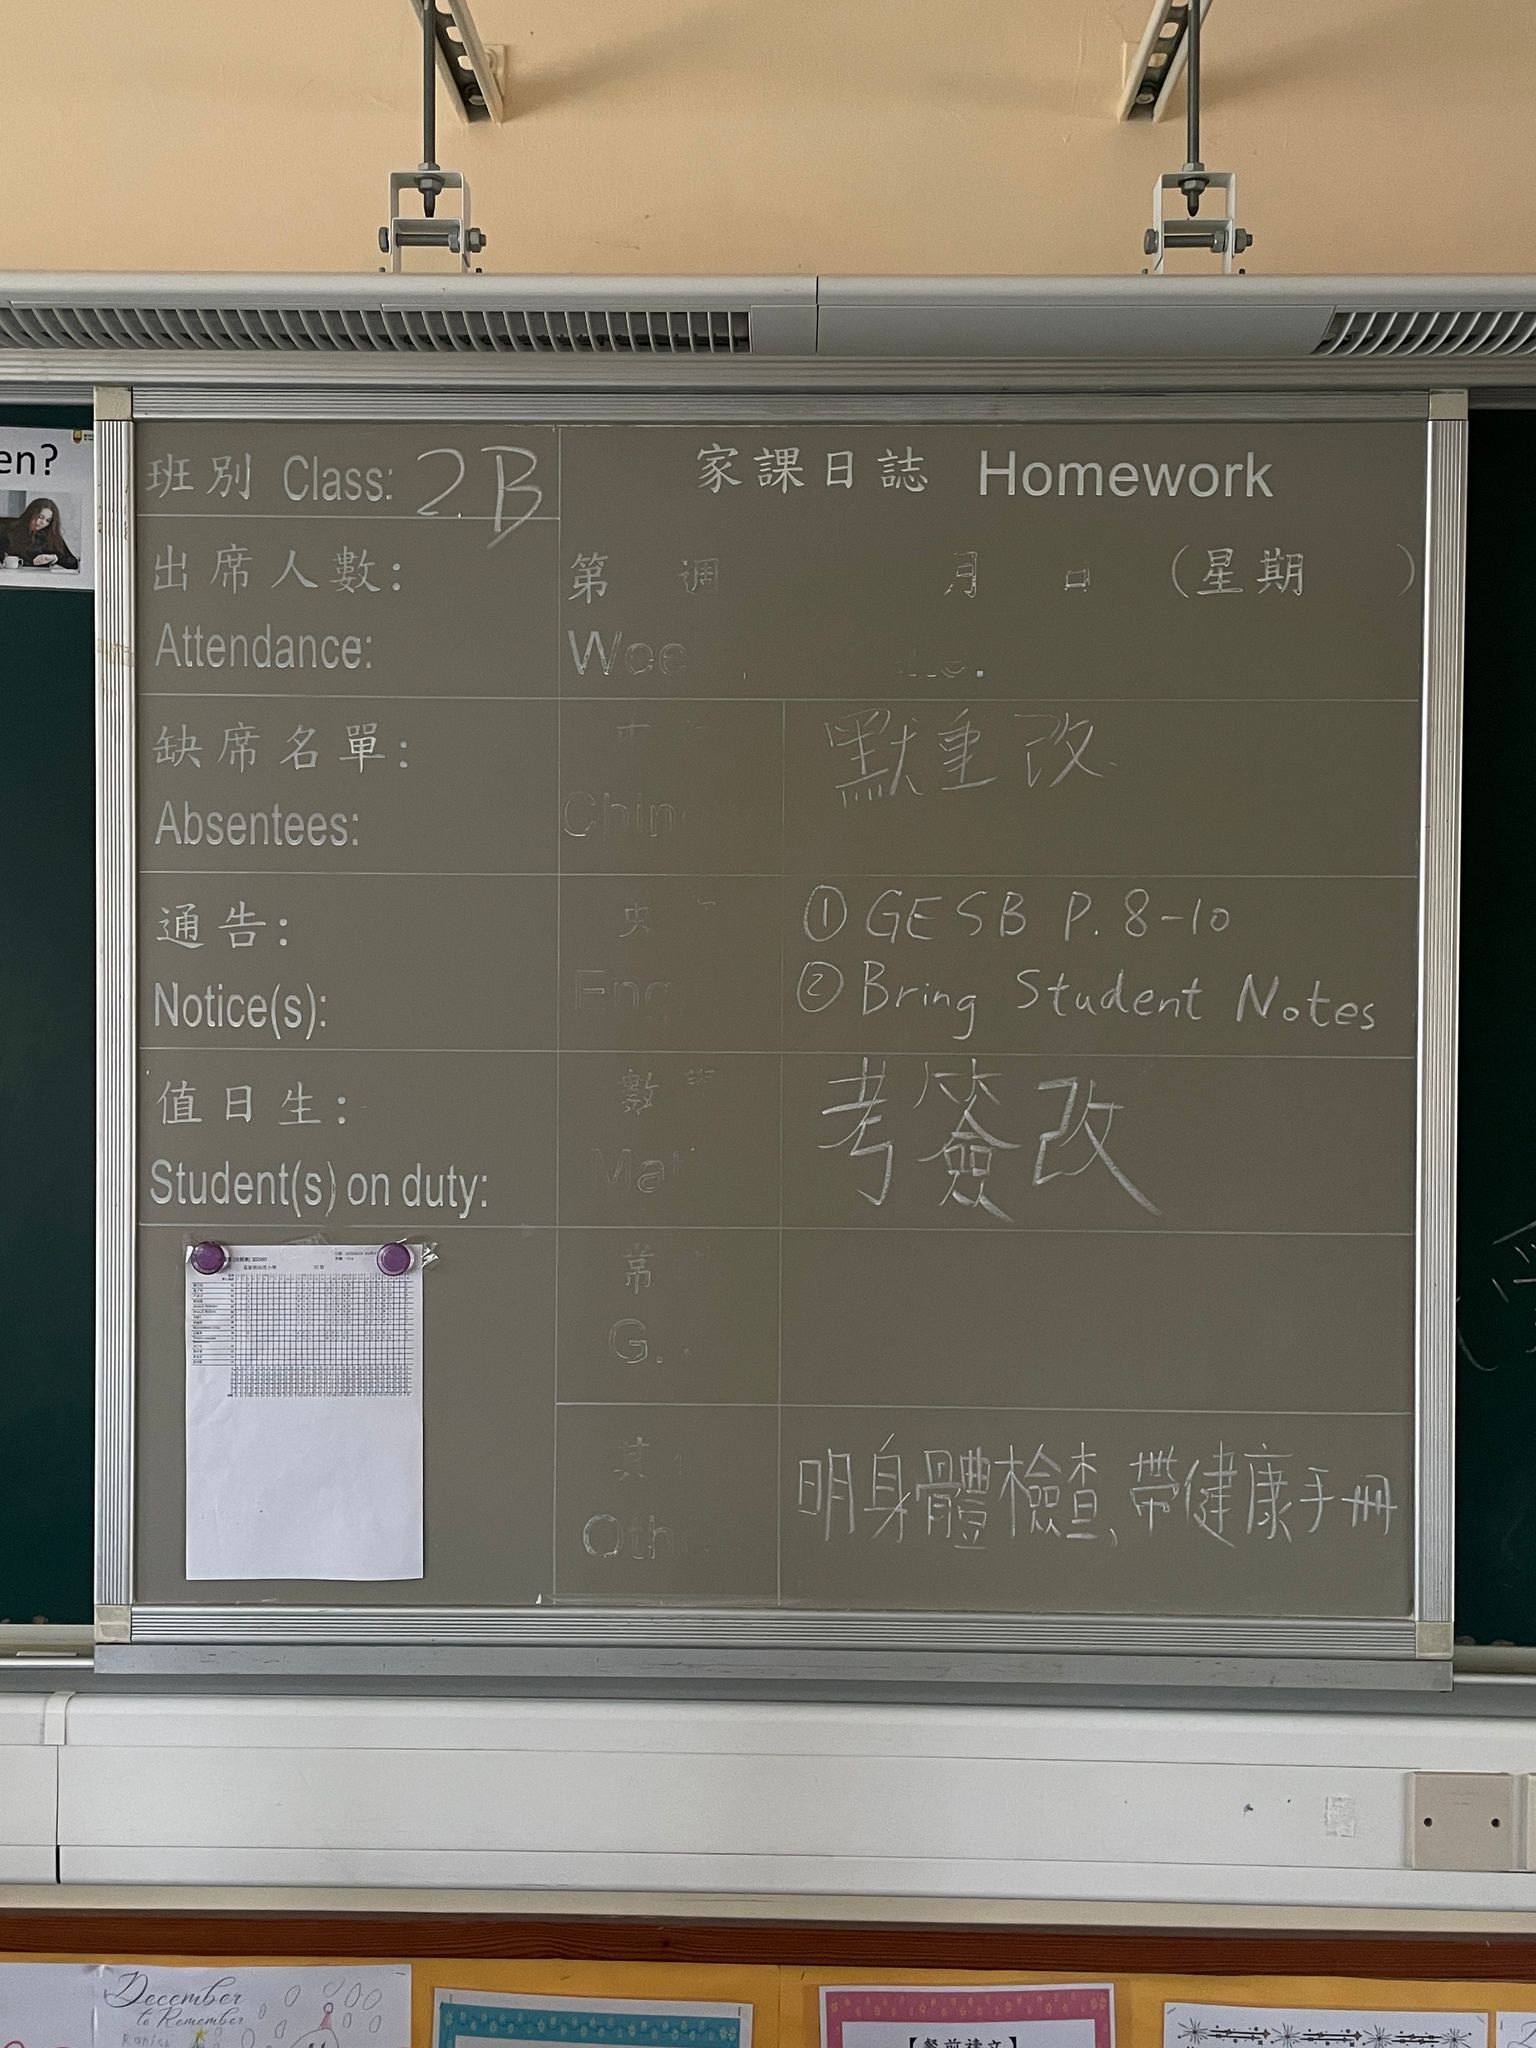 en?
班別 Class: 2B
家課日誌 Homework
出席人數:
Attendance:
第 週 月 日 (星期 )
Wee
缺席名單:
Absentees:
Chin
默重改
通告:
Notice(s):
Eng
① GE SB P. 8-10
② Bring Student Notes
值日生:
Student(s) on duty:
數
Mat
考簽改
常
G.
其
Oth
明身體檢查、帶健康手冊
December
to Remember
【餐前禱文】